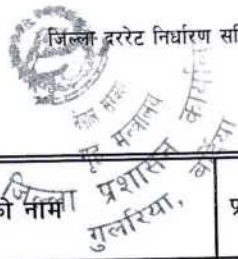 जिल्ला दररेट निर्धारण सि
नेपाल सरकार
गृह मन्त्रालय
जिल्ला प्रशासन कार्यालय
गुलरिया, बर्दिया
को नाम
प्र